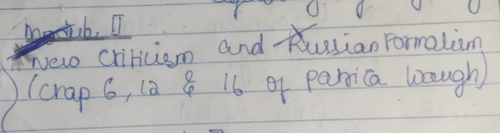 Module II
New Criticism and Russian Formalism
(Crap 6, 12 & 16 of Patrica Waugh)